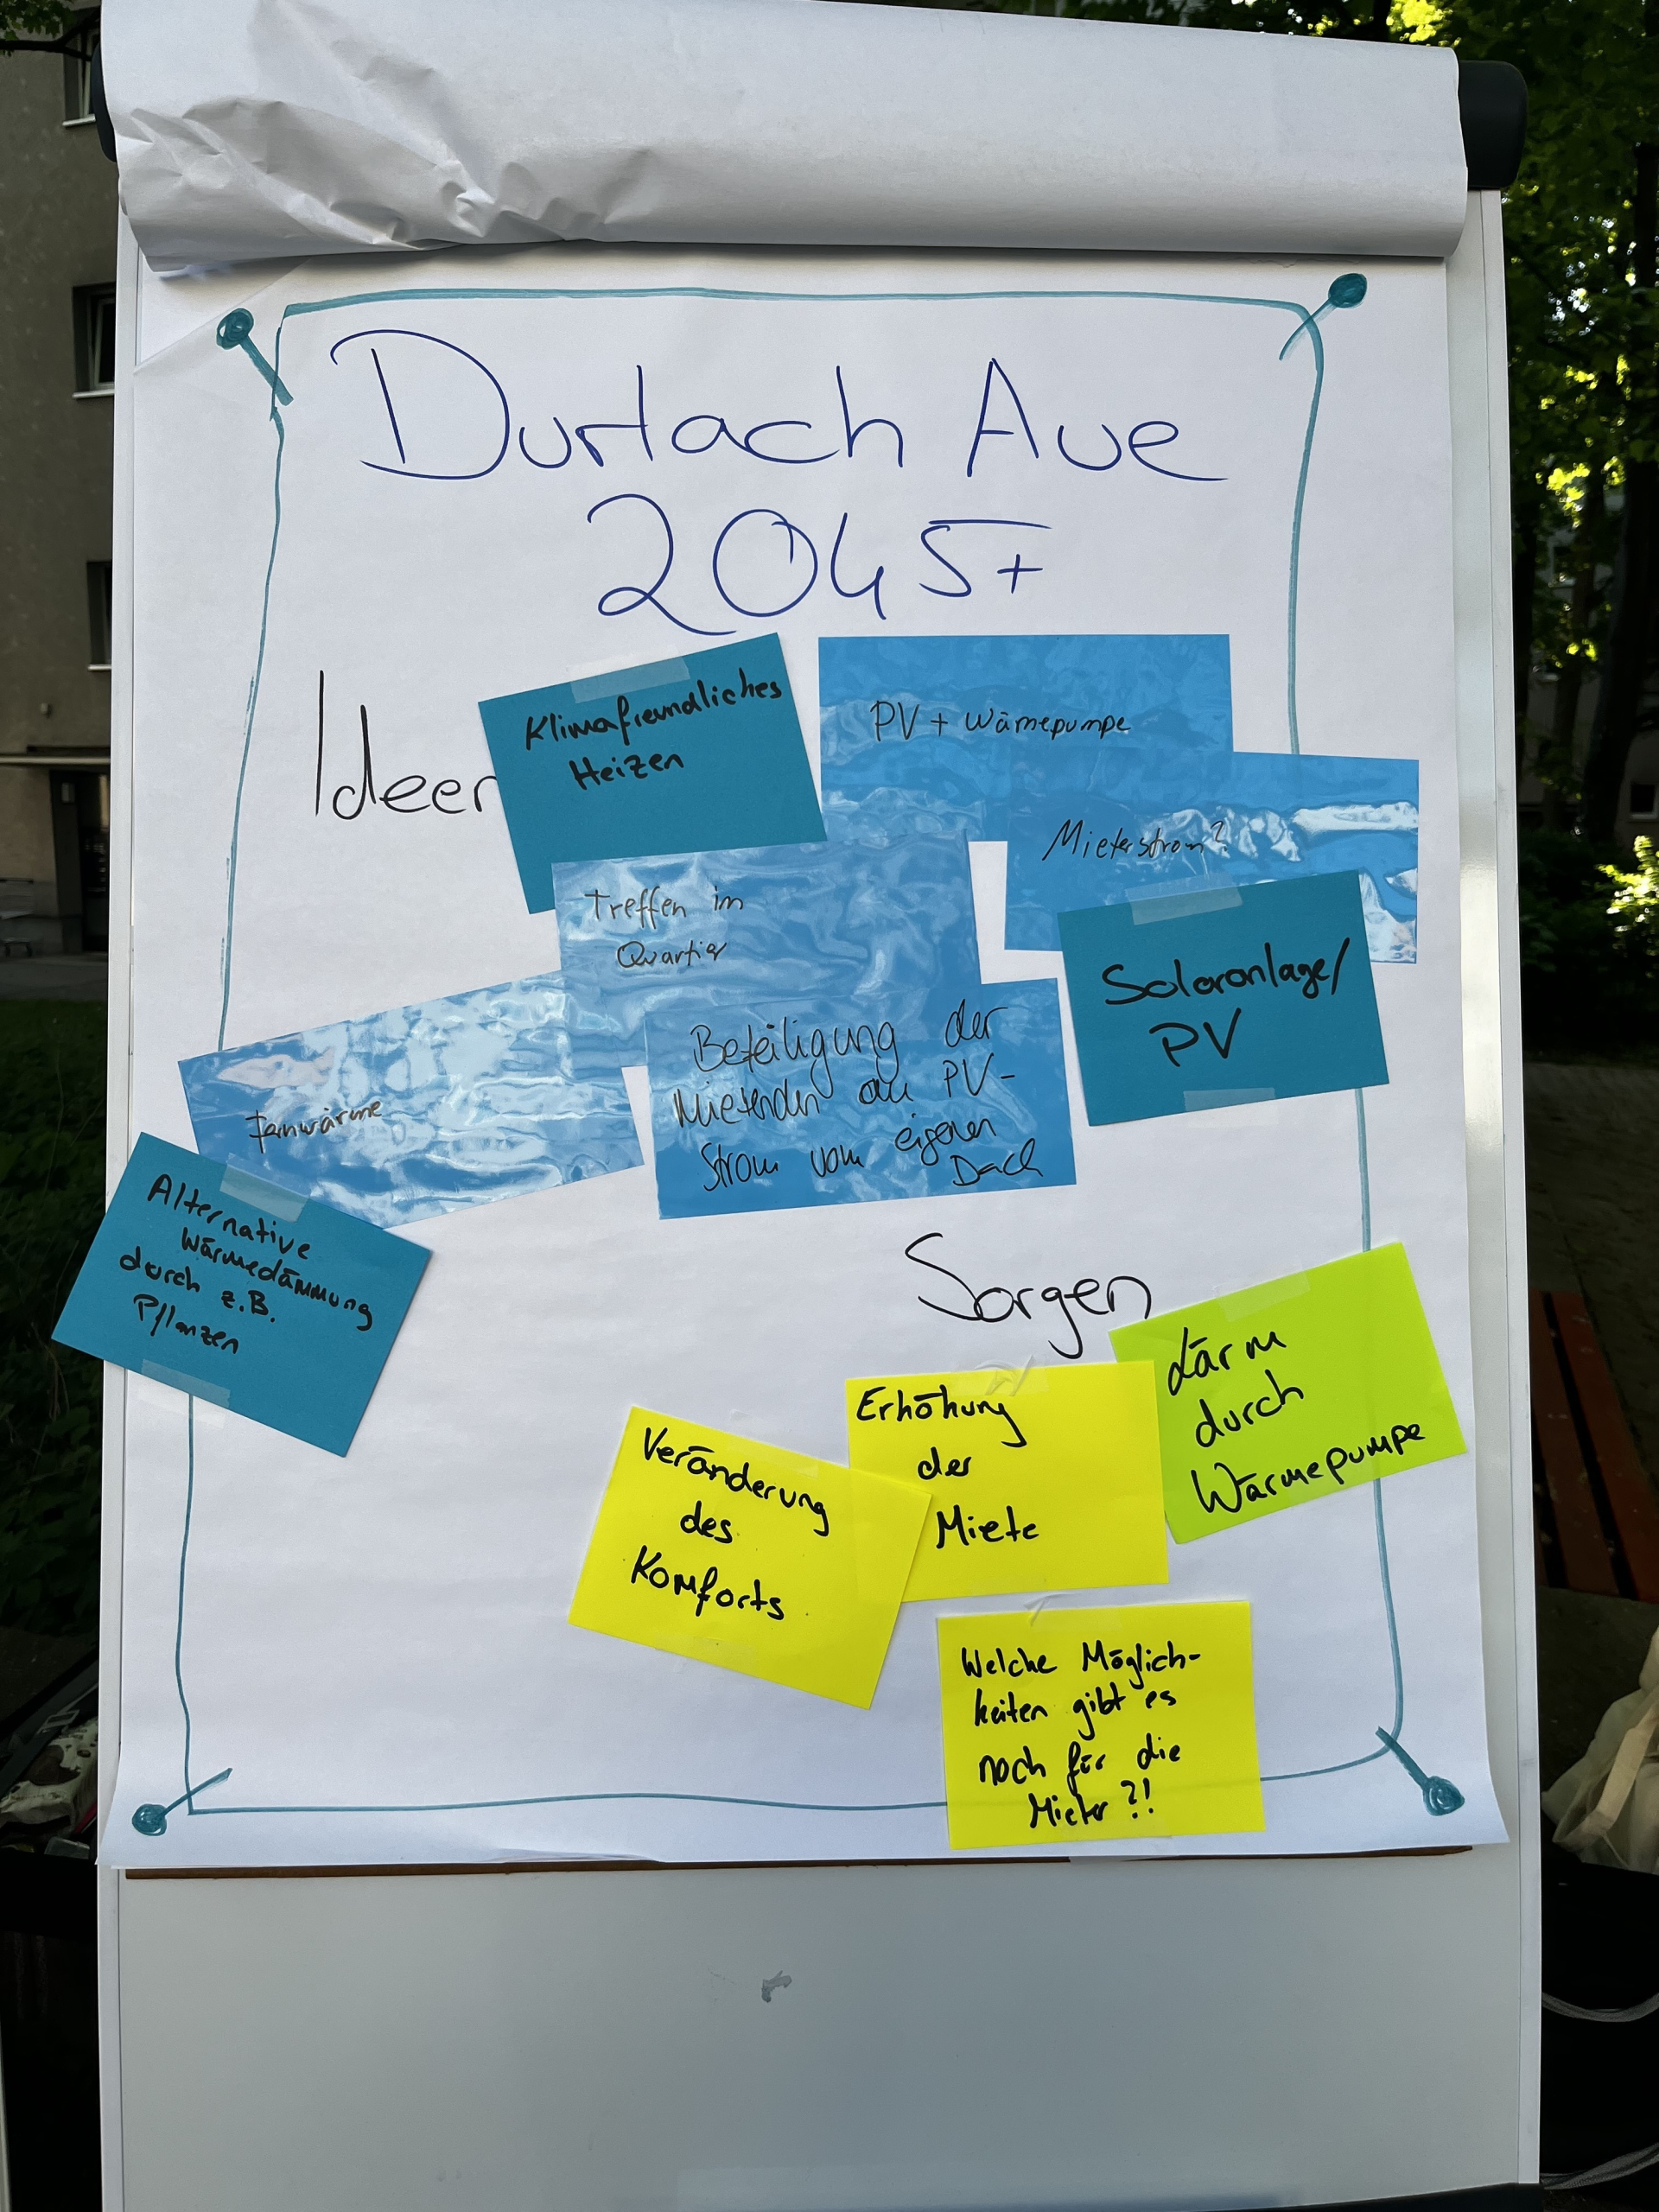 Durlach Aue
2045+
Ideen
Klimafreundliches
Heizen
PV + Wärmepumpe
Mieterstrom?
Treffen im
Quartier
Solaranlage/
PV
Fernwärme
Beteiligung der
Mietenden am PV-
Strom vom eigenen
Dach
Alternative
Wärmedämmung
durch z.B.
Pflanzen
Sorgen
Lärm
durch
Wärmepumpe
Erhöhung
der
Miete
Veränderung
des
Komforts
Welche Möglich-
keiten gibt es
noch für die
Mieter?!